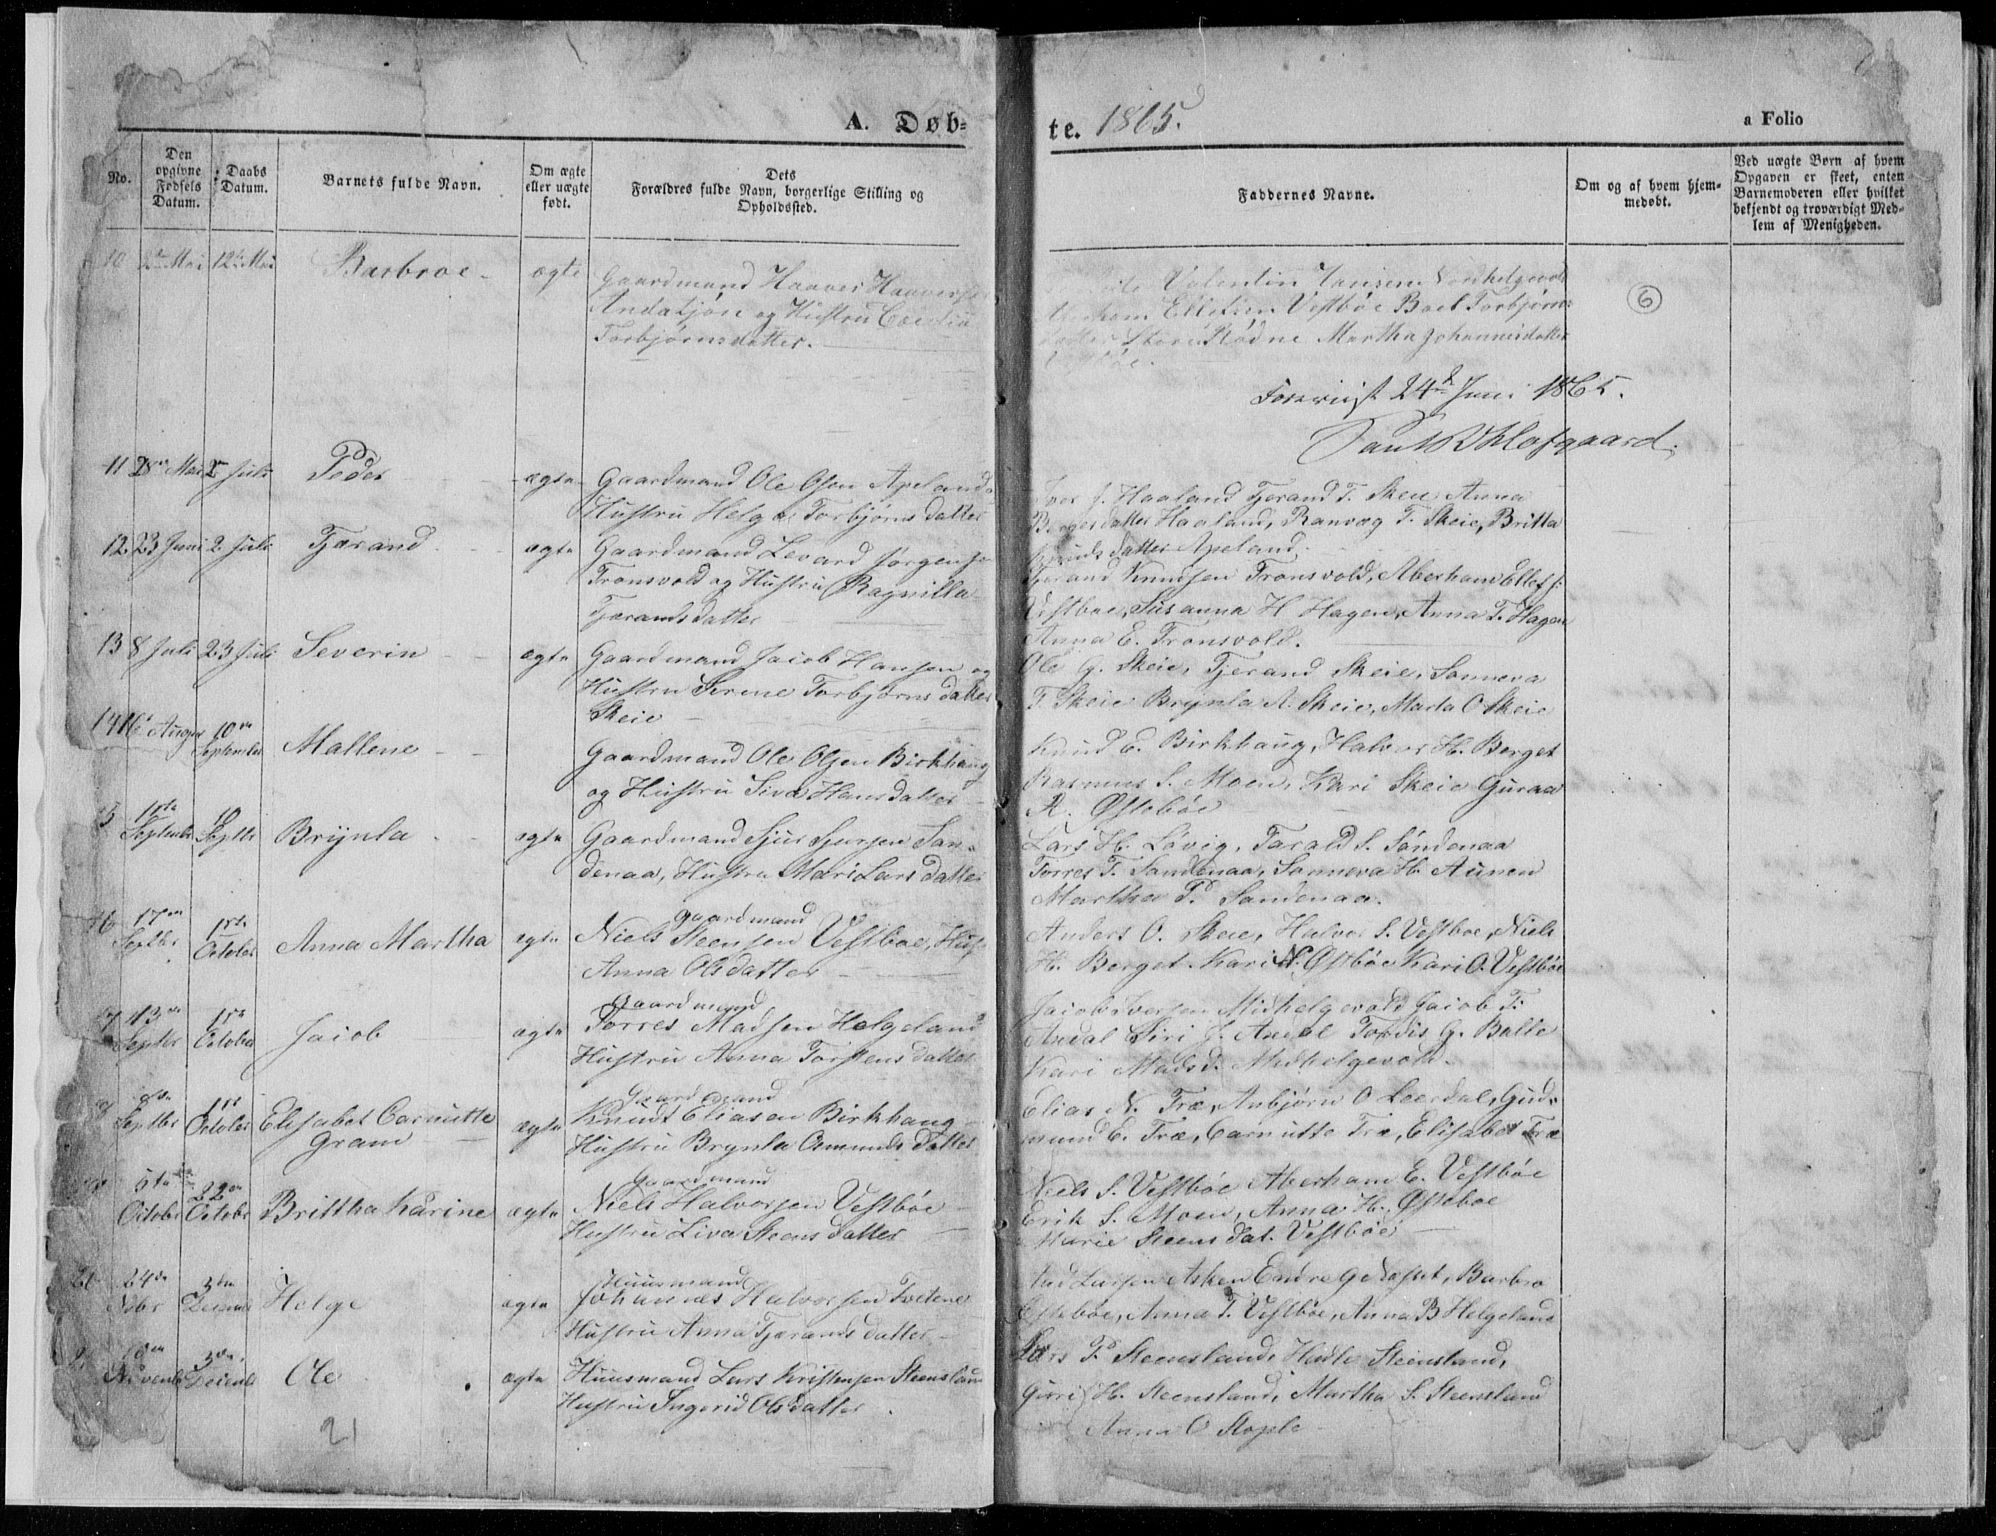 A. Døb=
te. 1865.
a Folio
No.
Den opgivne Fødsels Datum.
Daabs Datum.
Barnets fulde Navn.
Om ægte eller uægte født.
Dets Forældres fulde Navn, borgerlige Stilling og Opholdssted.
Faddernes Navne.
Om og af hvem hjemmedøbt.
Ved uægte Børn af hvem Opgaven er skeet, enten Barnemoderen eller hvilket bekjendt og troværdigt Medlem af Menigheden.
10 Mai 12te Mai Barbroe ægte
Gaardmand Haaver Haaversen
og Hustru
Torbjørnsdatter.
Valentin Jansen Nordhelgevold
Elletsen Vestbøe Boel Torbjørns
Store Rødne Martha Johannesdatter
6
24 Juni 1865.
11 28de Mai 2 Juli Peder ægte
Gaardmand Ole Olsen Apeland
Hustru Helga Torbjørnsdatter
J. Haaland Tjerand T. Skeie Anna
Bergesdatter Haaland, Ranvæg T. Skeie, Britta
Knudsdatter Apeland.
12 23 Juni 2 Juli Tjerand ægte
Gaardmand Levard Jørgens
Tronsvold og Hustru Ragnilla
Tjerandsdatter
Tjerand Knudsen Tronsvold, Aberham Ellefs.
Vestbøe, Susanna H Hagen, Anna T. Hagen
Anna E. Tronsvold.
13 8 Juli 23 Juli Severin ægte
Gaardmand Jacob Hansen og
Hustru Serene Torbjørnsdatter
Skeie
Ole G. Skeie, Tjerand Skeie, Sonneva
T. Skeie Brynla A. Skeie, Marta O Skeie
14 16 August 10de September Mallene
Gaardmand Ole Olsen Birkhaug
og Hustru Siva Hansdatter
Knud E. Birkhaug, Halvor H. Berget
Rasmus S. Moen, Kari Skeie Guraa
A. Østebøe
September Septbr Brynla ægte
Gaardmand Sjur Sjursen San=
denaa, Hustru Mari Larsdatter
Lars H. Løvig, Tarald S. Søndenaa
Torres T. Sandenaa, Sonneva H. Aunen
Martha P. Sandenaa.
16 17de Septbr 1ste October Anna Martha ægte
Gaardmand
Niels Steensen Vestbøe, Hus
Anna Olsdatter
Anders O. Skeie, Halvor S. Vestbøe, Niels
H. Berget Kari N. Østbøe Kari O. Vestbøe
13de Septbr 1ste October Jacob ægte
Gaardmand
Torres Madsen Helgeland
Hustru Anna Torstensdatter
Jacob Iversen Midhelgevold Jacob T.
Axdal Siri J. Axdal Tordis G. Balle
Kari Madsd. Midhelgevold
8de Septbr 1ste October Elisabet Carnutte
Gram ægte
Gaardmand
Knudt Eliasen Birkhaug
Hustru Brynla Osmundsdatter
Elias N. Træ, Anbjørn O Leerdal, Gud=
mund E. Træ, Carnutte Træ, Elisabet Træ
5te October 22de October Brittha Karine ægte
Gaardmand
Niels Halvorsen Vestbøe
Hustru Liva Steensdatter
Niels S. Vestbøe Aberham E. Vestbøe
Erik S. Moen, Anna H. Østebøe
Marie Steensdat. Vestbøe
20 24de Novbr 3de Decemb Helge ægte
Huusmand
Johannes Halvorsen Tvetene
Hustru Anna Tjerandsdatter
Larsen Asken Endre G Næstet, Barbro
Østebøe, Anna T. Vestbøe, Anna B Helgeland
November 3de Decemb Ole ægte
Huusmand Lars Kristensen Steensland
Hustru Ingerid Olsdatter
Lars P. Steensland, Helle Steensland,
Gurri H. Steensland, Martha S. Steensland
Anna O Stople
21